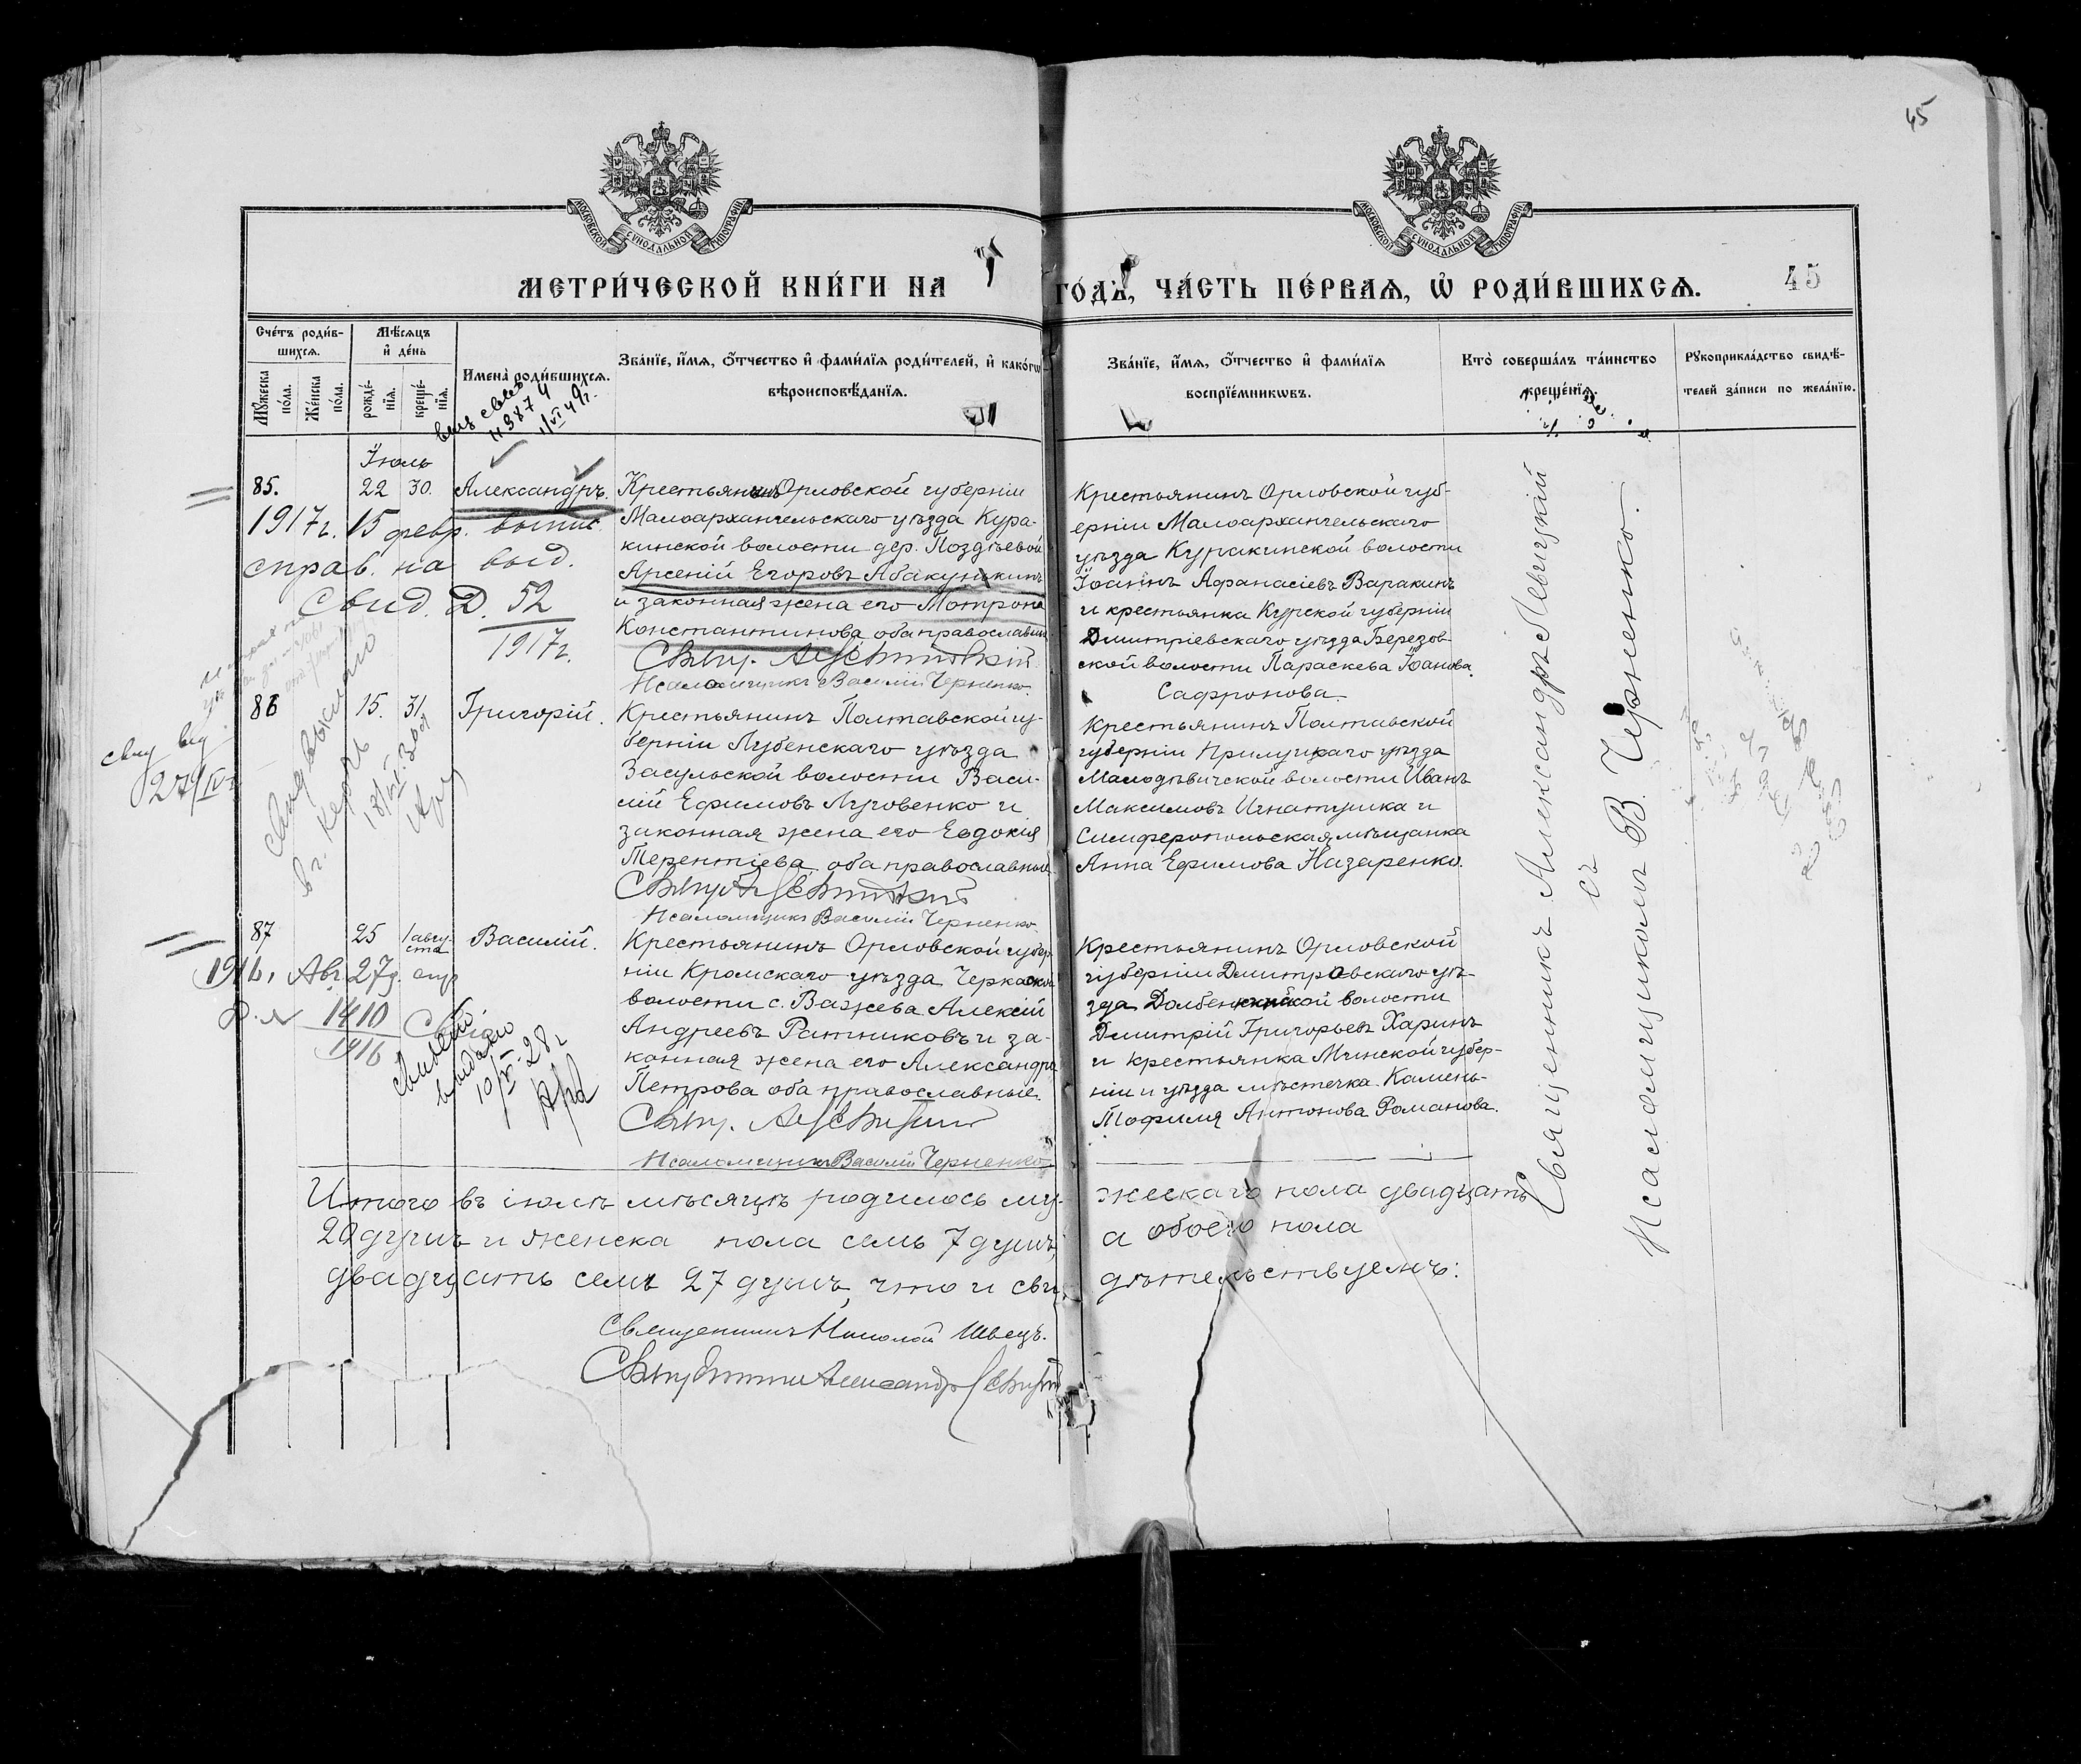 45
МОСКОВСКОЙ СѴНОДАЛЬНОЙ ТИПОГРАФІИ
МОСКОВСКОЙ СѴНОДАЛЬНОЙ ТИПОГРАФІИ
МЕТРИ́ЧЕСКОЙ КНИ́ГИ НА ГО́ДЪ, ЧА́СТЬ ПЕ́РВАѦ, Ѡ҆ РОДИ́ВШИХСѦ.
45
Сче́тъ роди́в-
шихсѧ.
Мꙋ́жеска по́ла.
Же́нска по́ла.
Мѣ́сяцъ
и҆ де́нь
рожде́-
нїѧ.
креще́-
нїѧ.
Имена̀ роди́вшихсѧ.
Зва́нїе, и҆́мѧ, ѻ҆́тчество и҆ фами́лїѧ роди́телей, и҆ како́гѡ
вѣроисповѣ́данїѧ.
Зва́нїе, и҆́мѧ, ѻ҆́тчество и҆ фами́лїѧ
воспрїе́мникѡвъ.
Кто̀ соверша́лъ та́инство
креще́нїѧ.
Рꙋкоприкла́дство свидѣ́-
телей за́писи по жела́нїю.
Іюль
85.
22
30.
Александръ.
Крестьянинъ Орловской губерніи
Малоархангельскаго уѣзда Кура-
кинской волости дер. Поздѣевой
Арсеній Егоровъ Абакунькинъ
и законная жена его Матрона
Константинова оба православн
Псаломщикъ Василій Черненко
Крестьянинъ Орловской губ-
ерніи Малоархангельскаго
уѣзда Куракинской волости
Іоаннъ Афанасіевъ Варакинъ
и крестьянка Курской губерніи
Дмитріевскаго уѣзда Березов-
ской волости Параскева Іоанова
Сафронова.
1917г. 15 февр. выпис.
справ. на выд.
Свид. Д. 52
1917г.
86
15.
31.
Григорій.
Крестьянинъ Полтавской гу-
берніи Лубенскаго уѣзда
Засульской волости Васи-
лій Ефимовъ Луговенко и
законная жена его Евдокія
Терентіева оба православные
Псаломщикъ Василій Черненко
Крестьянинъ Полтавской
губерніи Прилуцкаго уѣзда
Малодѣвичской волости Иванъ
Максимовъ Игнатушка и
Симферопольская мѣщанка
Анна Ефимова Назаренко.
свид выслано
в г. Керчь
87
25
1 авгу-
ста
Василій.
Крестьянинъ Орловской губер-
ніи Кромскаго уѣзда Черкаской
волости с. Важева Алексій
Андреевъ Ратниковъ и за-
конная жена его Александра
Петрова оба православные.
Псаломщикъ Василій Черненко
Крестьянинъ Орловской
губерніи Дмитровскаго уѣ-
зда Долбенкинской волости
Дмитрій Григорьевъ Харинъ
и крестьянка Минской губер-
ніи и уѣзда мѣстечка Камень-
Тофиля Антонова Романова.
1916. Авг. 27д.
1410
1916
выдано
Священникъ Александръ Левицкій
съ
Псаломщикомъ В. Черненко.
Итого въ іюлѣ мѣсяцѣ родилось му- жескаго пола двадцать
20 душъ и женска пола семь 7 душъ, а обоего пола
двадцать семь 27 душъ, что и сви- дѣтельствуемъ:
Священникъ Николай Швецъ.